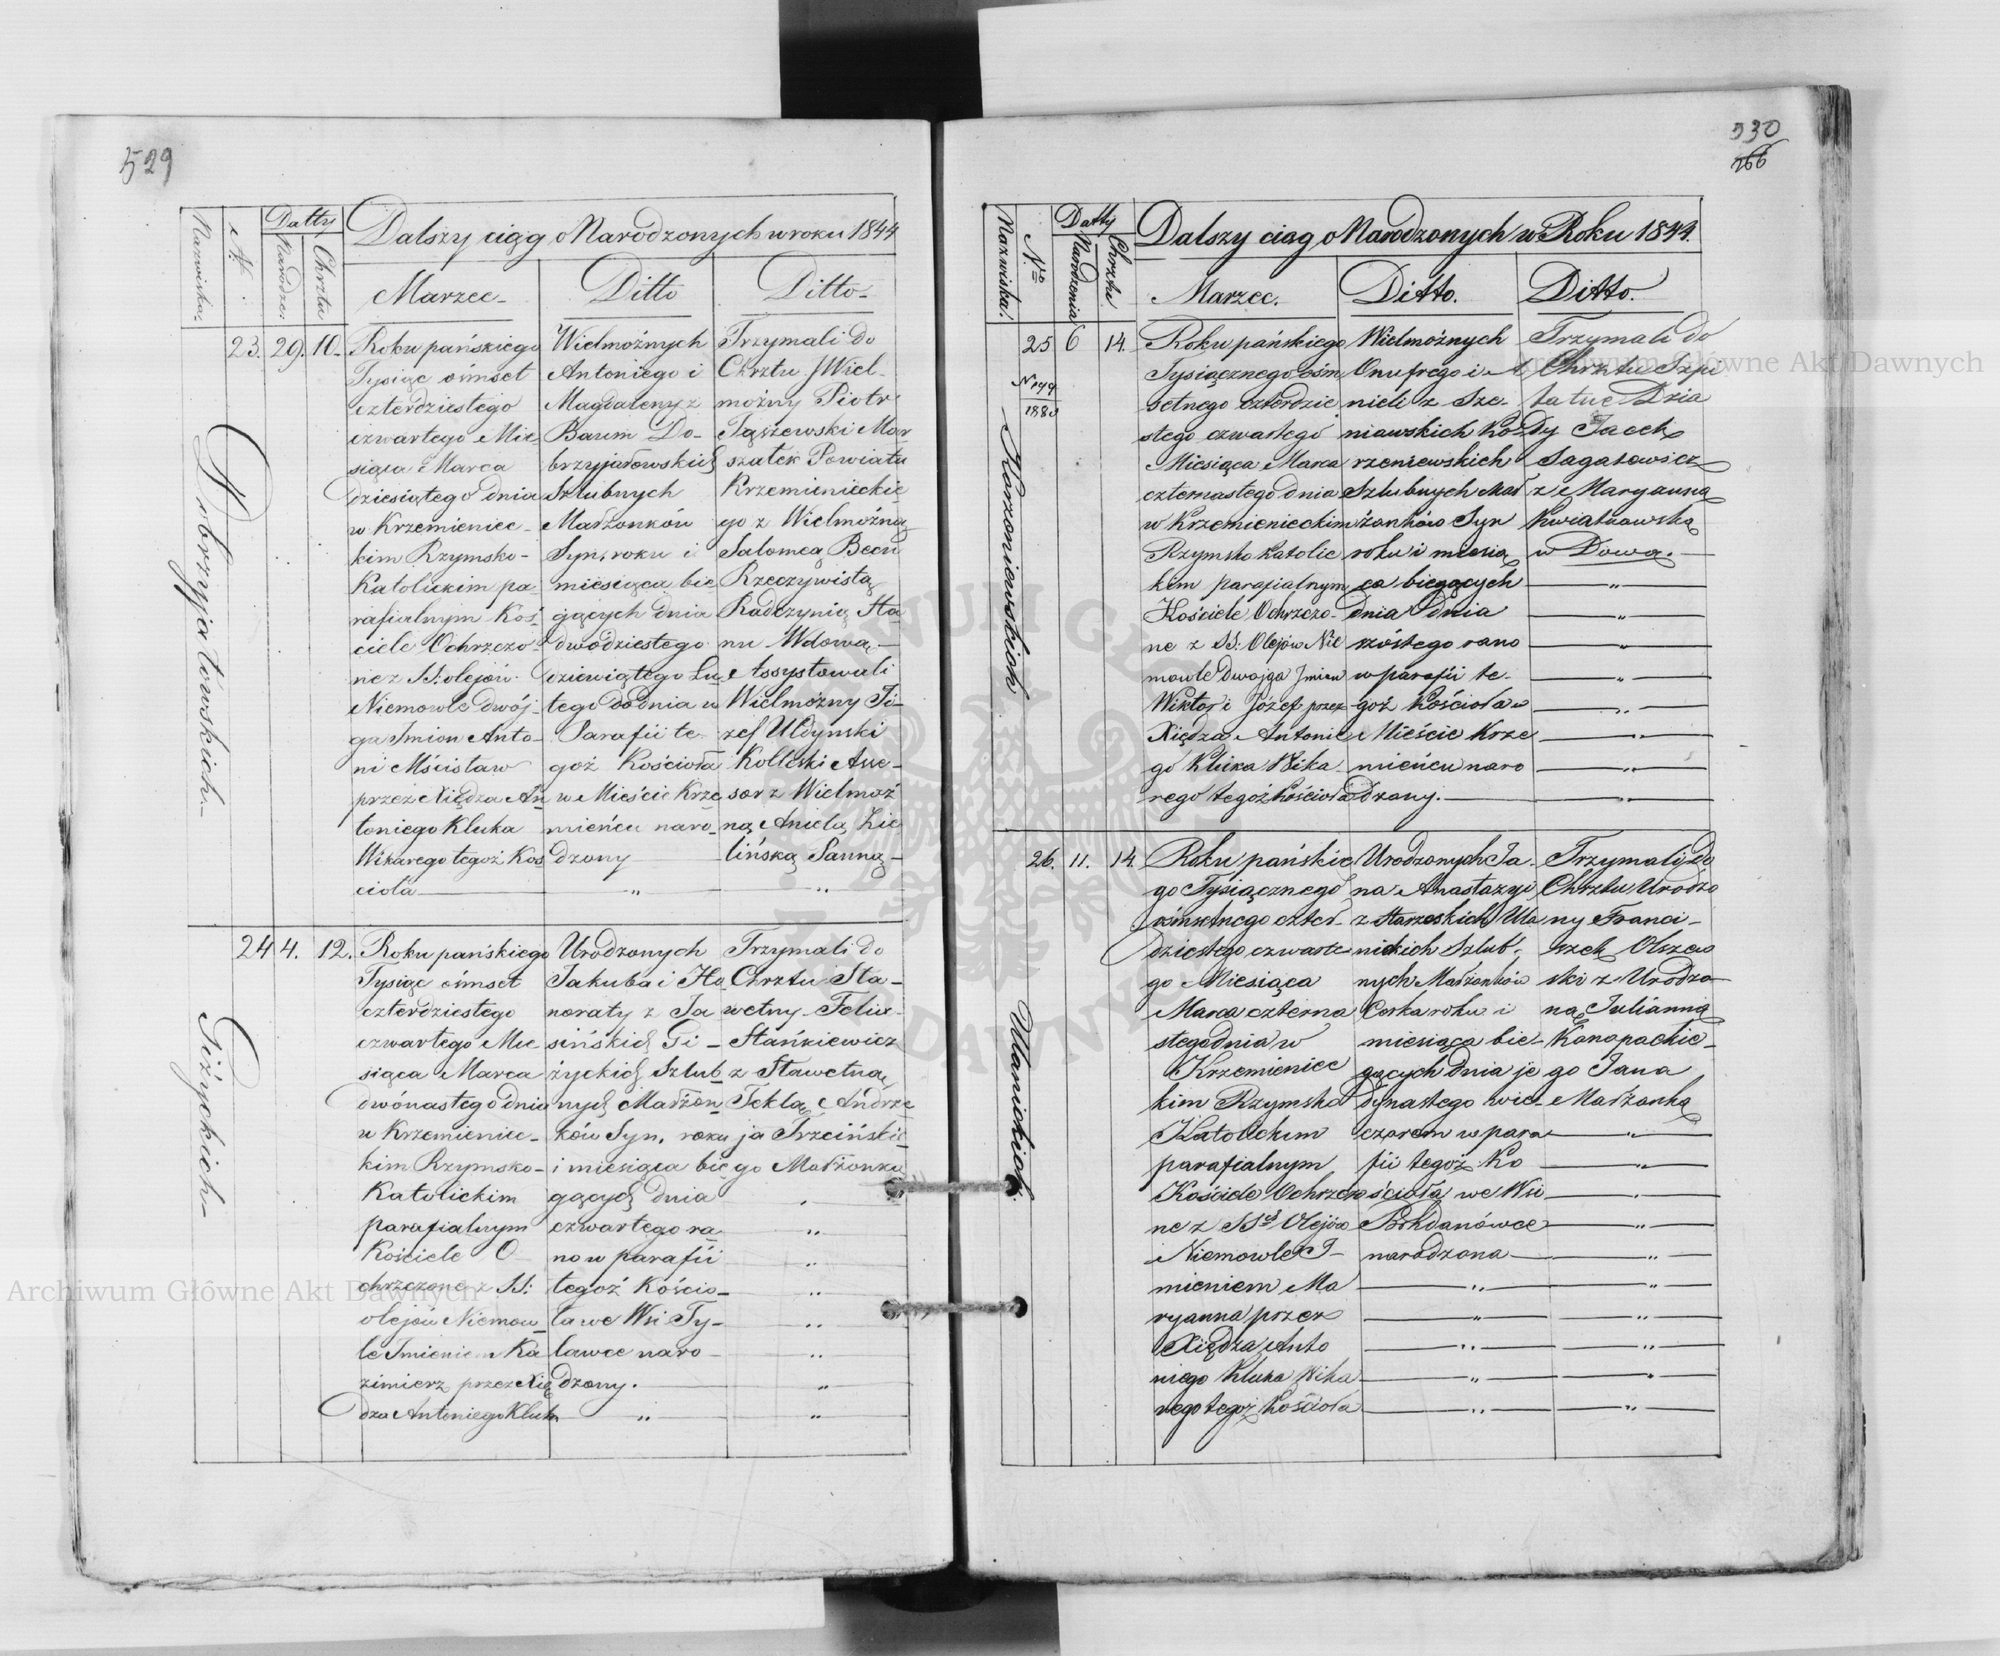 529
Dalszy ciąg o Narodzonych w roku 1844
Nazwiska
N:
Datty
Narodze:
Chrztu
Marzec
Ditto
Ditto
Dobrzyjałowskich
23. 29. 10.
Roku pańskiego
Tysiąc ośmset
czterdziestego
czwartego Mie
siąca Marca
dziesiątego dnia
w Krzemieniec-
kim Rzymsko-
Katolickim pa-
rafialnym Koś-
ciele Ochrzczo-
ne z SS: olejów
Niemowle dwój-
ga Imion Anto-
ni Mścisław
przez Xiędza An
toniego Kluka
Wikarego tegoż Koś
cioła
Wielmożnych
Antoniego i
Magdaleny z
Baum Do-
brzyjałowskich
Szlubnych
Małżonków
Syn, roku i
miesiąca bie-
gących dnia
dwódziestego
dziewiątego Lu
tego do dnia w
Parafii te-
goż Kościoła
w Mieście Krze
mieńcu naro-
dzony
Trzymali do
Chrztu JWiel-
możny Piotr
Taszewski Mar
szałek Powiatu
Krzemienieckie
go z Wielmożną
Salomeą Becu
Rzeczywistą
Radczynią Sta
nu Wdową
Assystowali
Wielmożny Jó-
zef Uldynski
Kolleski Asse-
sor z Wielmoż
ną Anielą Zie
lińską Panną
24 4. 12.
Giżyckich
Roku pańskiego
Tysiąc ośmset
czterdziestego
czwartego Mie
siąca Marca
dwónastego dnia
w Krzemieniec-
kim Rzymsko-
Katolickim
parafialnym
Kościele O
chrzczone z SS:
olejów Niemow
le Imieniem Ka
zimierz przez Xię
dza Antoniego Kluka
Urodzonych
Jakuba i Ho
noraty z Ja
sińskich Gi-
życkich Szlub
nych Małżon
ków Syn, roku
i miesiąca bie
gących dnia
czwartego ra
no w parafii
tegoż Kościo-
ła we Wsi Ty-
lawce naro-
dzony.
Trzymali do
Chrztu Sła-
wetny Felix
Stańkiewicz
z Sławetną
Teklą Andrze
ja Trzcińskie
go Małżonką
530
266
Dalszy ciag o Narodzonych w Roku 1844.
Nazwiska
N.ro
Datty
Narodzenia
Chrztu
Marzec.
Ditto.
Ditto.
Korzeniewskich
25 6 14.
1880
Roku pańskiego
Tysiącznego ośm
setnego czterdzie
stego czwartego
Miesiąca Marca
czternastego dnia
w Krzemienieckim
Rzymsko Katolic
kim parafialnym
Kościele Ochrzczo-
ne z SS: Olejów Nie
mowle dwojga Imion
Wiktor i Józef przez
Xiędza Antonie
go Kluka Wika
rego tegoż kościoła
Wielmożnych
Onufrego i A
nieli z Sze-
niawskich Ko
rzeniewskich
Szlubnych Mał
żonków Syn
roku i miesią
ca biegących
dnia dnia
szóstego rano
w parafii te-
goż Kościoła w
Mieście Krze
mieńcu naro
dzony.
Trzymali do
Chrztu Szpi
talne Dzia
dy Jacek
Sagatowicz
z Maryanną
Kwiatkowską
w Dową.
26. 11. 14.
Ulanickich
Roku pańskie
go Tysiącznego
ośmsetnego czter
dziestego czwarte
go Miesiąca
Marca czterna
stego dnia w
Krzemieniec
kim Rzymsko
Katolickim
parafialnym
Kościele Ochrzczo
ne z SS.ch Olejów
Niemowle I-
mieniem Ma
ryanna przez
Xiędza Anto
niego Kluka Wika
rego tegoż kościoła
Urodzonych Ja-
na Anastazyi
z Starzeskich Ula
nickich Szlub-
nych Małżonków
Corka roku i
miesiąca bie-
gących dnia je
dynastego wie-
czorem w para
fii tegoż Ko
ścioła we Wsi
Bohdanówce
narodzona
Trzymali do
Chrztu Urodzo
ny Franci-
szek Olszew
ski z Urodzo
ną Julianną
Kanapackie-
go Jana
Małżonką
Archiwum Główne Akt Dawnych
Archiwum Główne Akt Dawnych